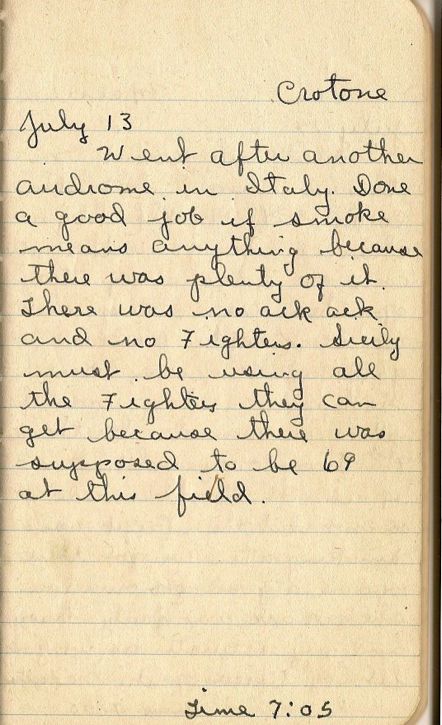 Crotone
July 13
Went after another
airdrome in Italy. Done
a good job if smoke
means anything because
there was plenty of it.
There was no ack ack
and no Fighters. Sicily
must be using all
the Fighters they can
get because there was
supposed to be 69
at this field.
Time 7:05